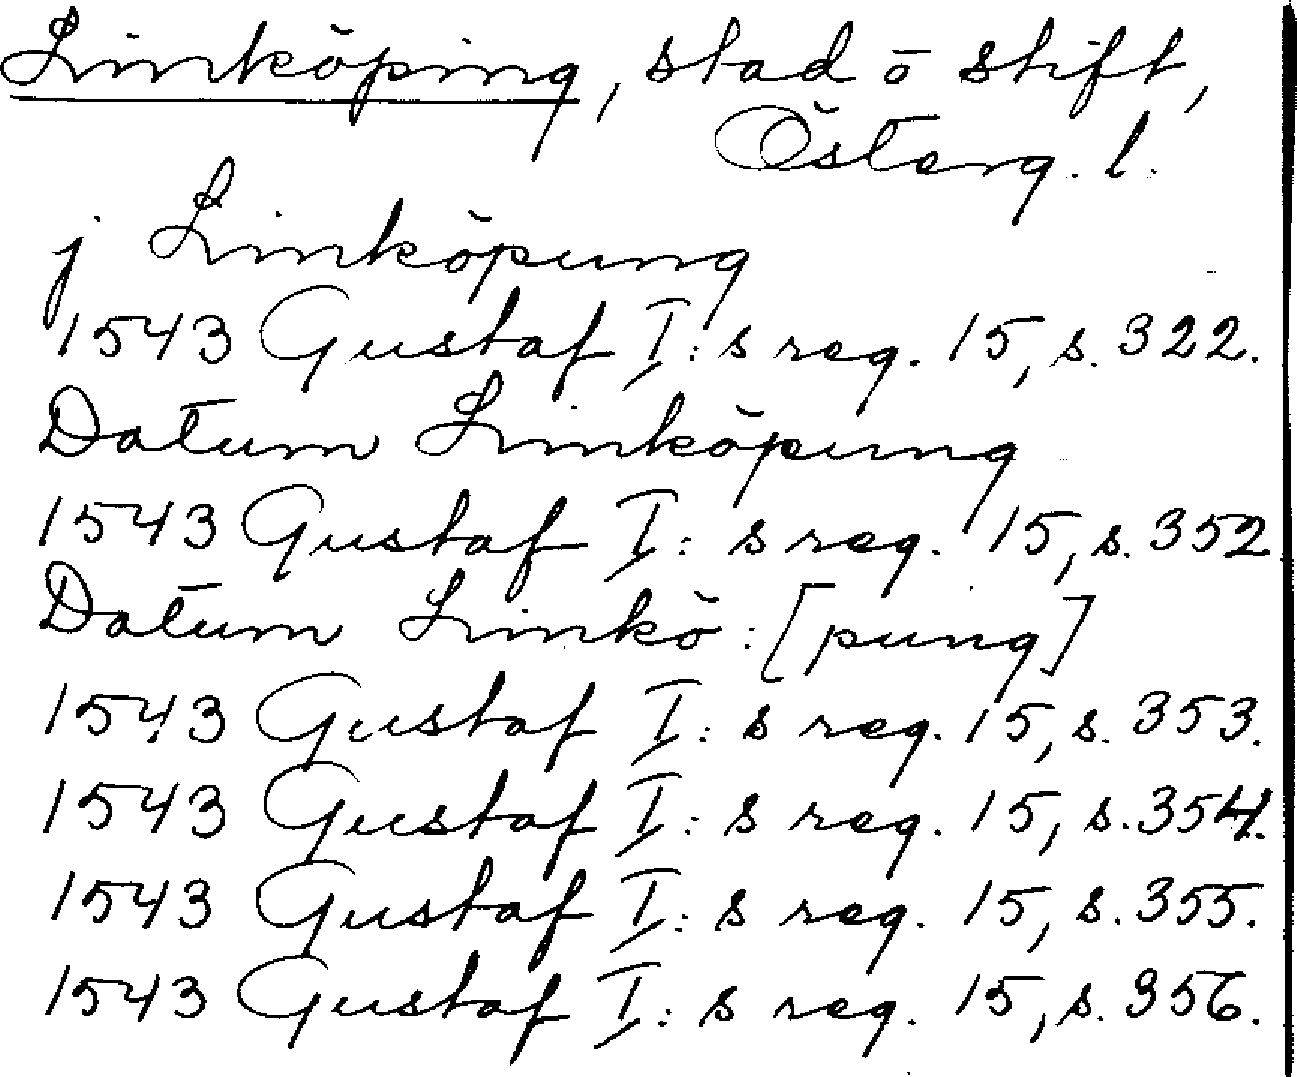 Linköping, stad o stift,
Österg. l.
j Linköpung
1543 Gustaf I:s reg. 15, s. 322.
Datum Linköpung
1543 Gustaf I:s reg. 15, s. 352
Datum Linkö: [pung]
1543 Gustaf I:s reg. 15, s. 353.
1543 Gustaf I:s reg. 15, s. 354.
1543 Gustaf I:s reg. 15, s. 355.
1543 Gustaf I:s reg. 15, s. 356.